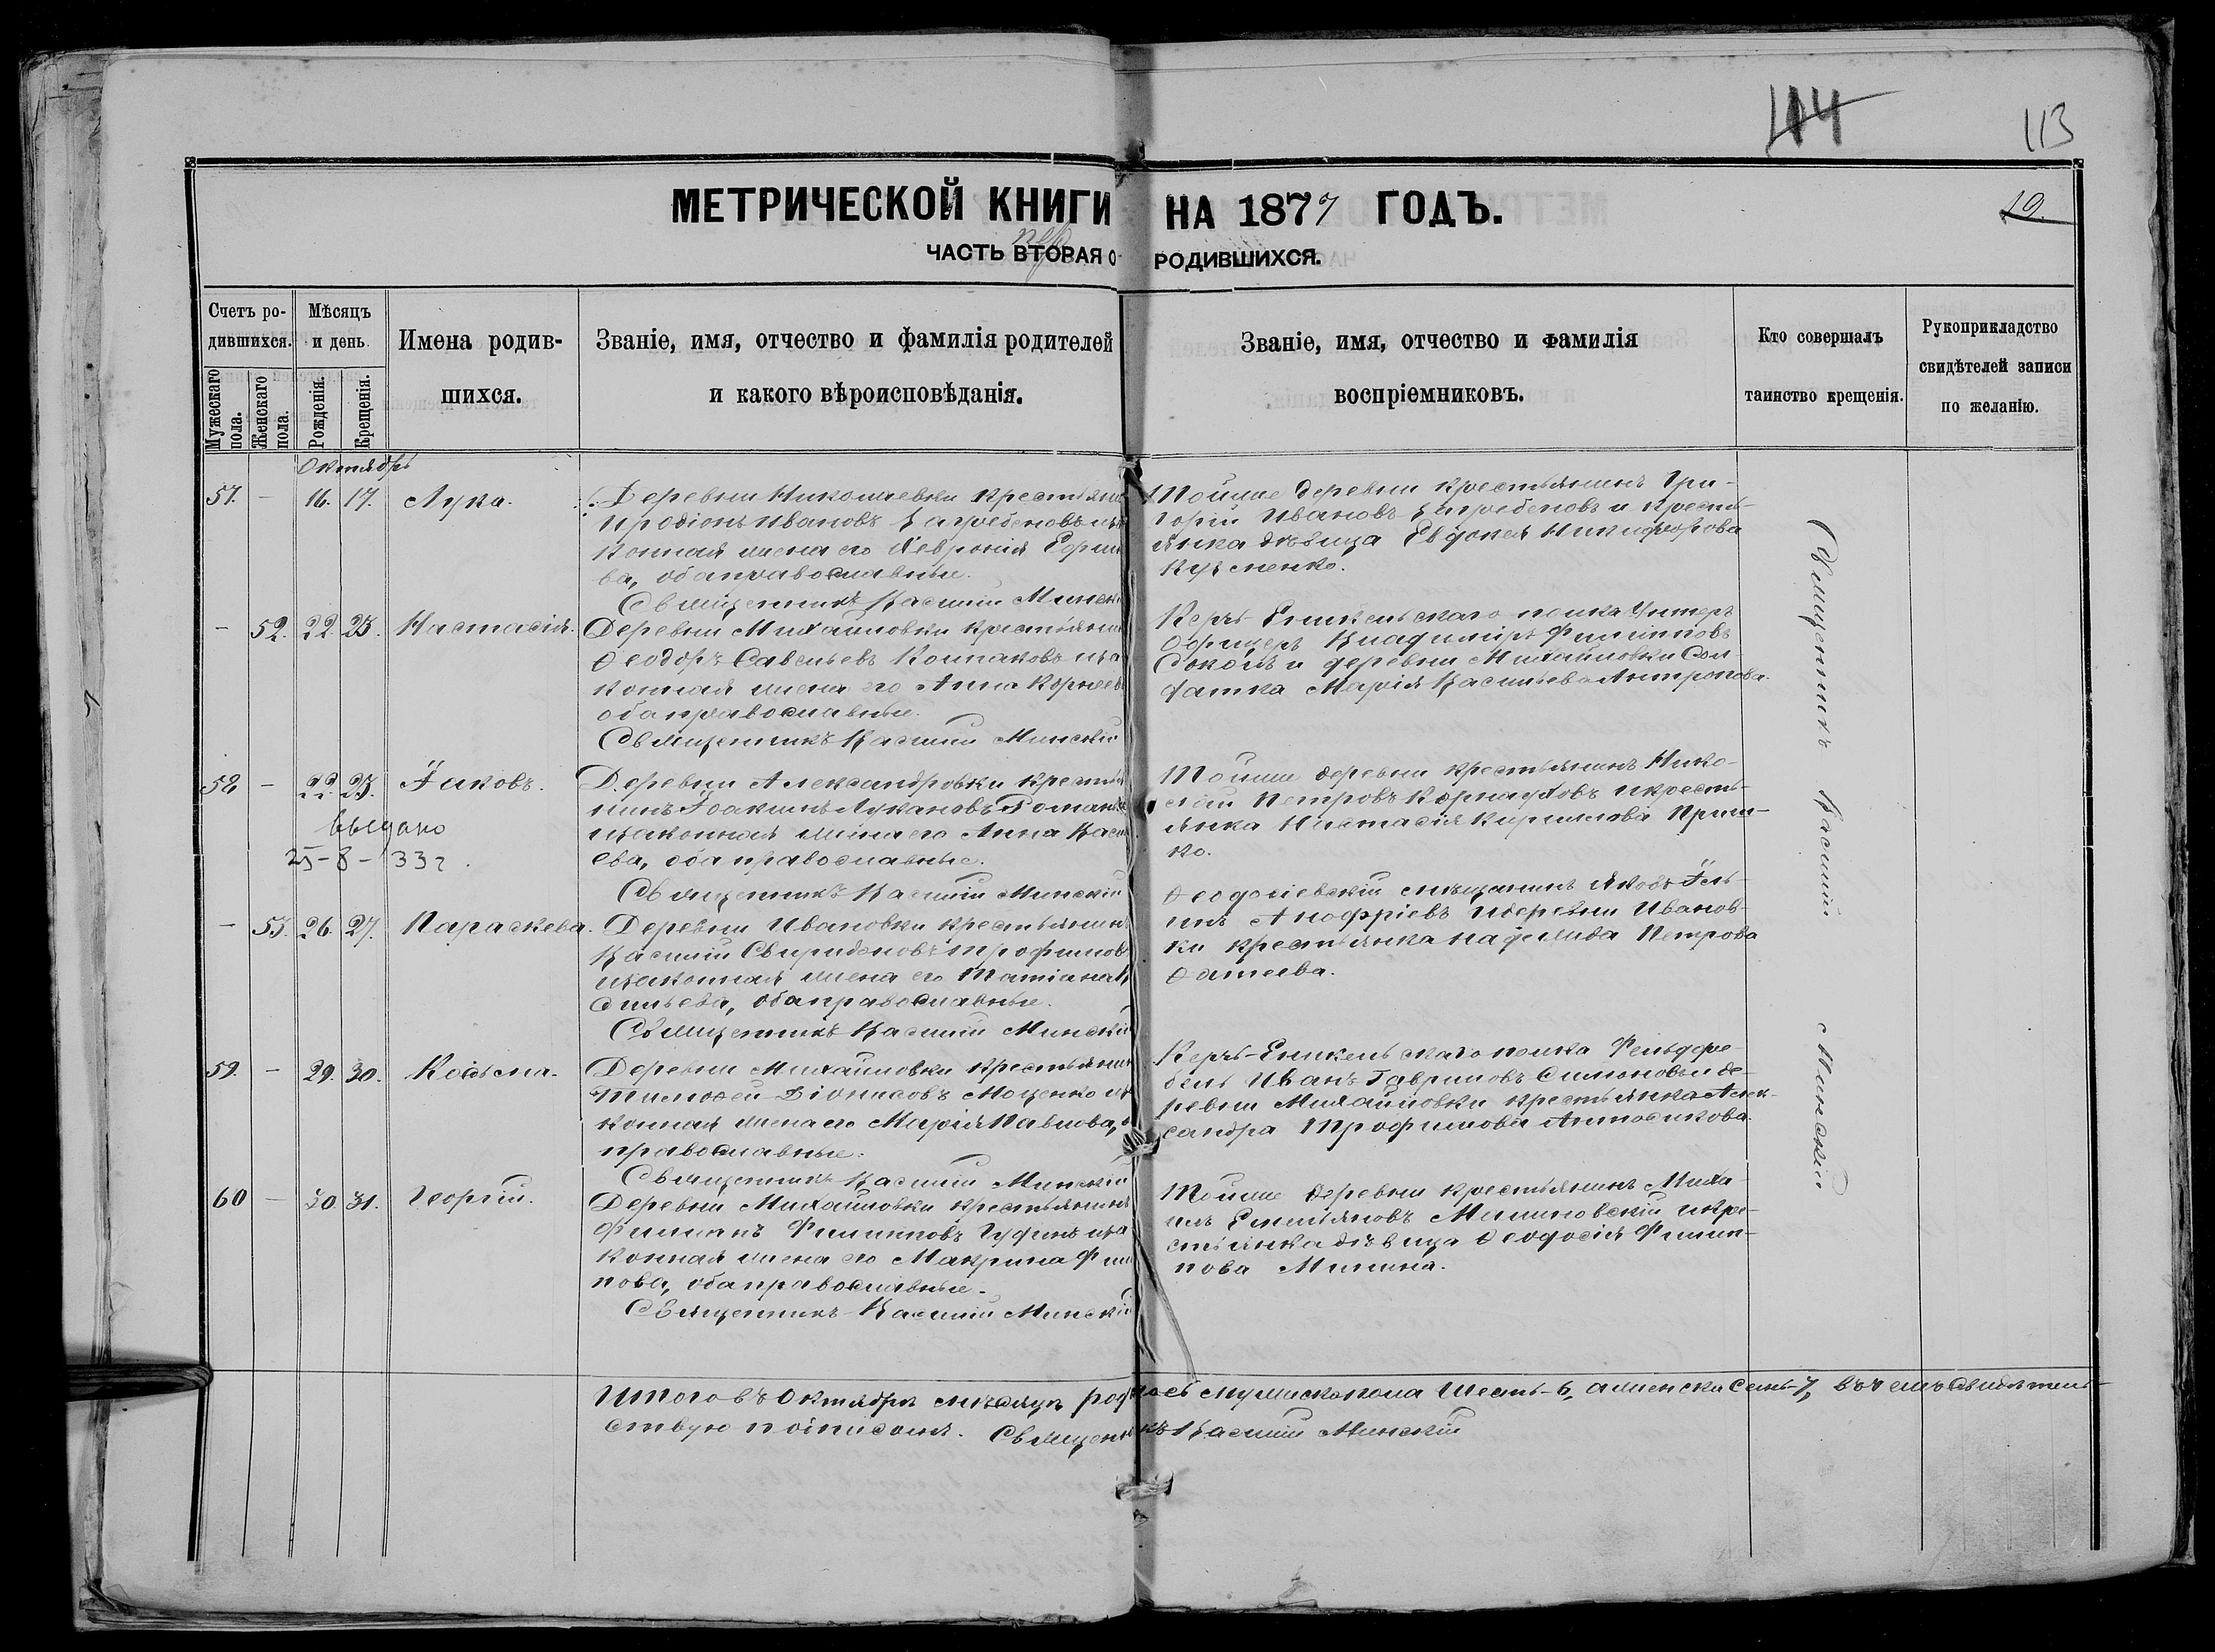 114
113
МЕТРИЧЕСКОЙ КНИГИ НА 1877 ГОДЪ.
19.
пер
ЧАСТЬ ВТОРАЯ О РОДИВШИХСЯ.
Счетъ ро-
дившихся.
Мужескаго
пола.
Женскаго
пола.
Мѣсяцъ
и день
Рожденія.
Крещенія.
Имена родив-
шихся.
Званіе, имя, отчество и фамилія родителей
и какого вѣроисповѣданія.
Званіе, имя, отчество и фамилія
воспріемниковъ.
Кто совершалъ
таинство крещенія.
Рукоприкладство
свидѣтелей записи
по желанію.
Октябрь
57. - 16. 17. Лука.
Деревни Николаевки крестьяни
Иродіонъ Ивановъ Загребеновъ иза
конная жена его Февронія Ефим
ва, оба православные.
Священникъ Василій Минскі
Тойже деревни крестьянинъ Гри-
горій Ивановъ Загребеновъ и кресть-
янка дѣвица Евдокея Никифорова
Кузменко.
- 52. 22. 23. Настасія.
Деревни Михайловки крестьянин
Ѳеодоръ Савельевъ Колпаковъ иза
конная жена его Анна Корнеев
оба православные.
Священникъ Василій Минскій
Керчь-Еникельскаго полка Унтеръ
Офицеръ Владиміръ Филипповъ
Соколъ и деревни Михайловки Сол-
датка Марія Васильева Антропова.
58. - 22. 23. Іаковъ.
выдано
25-8-33г.
Деревни Александровки крестья
нинъ Іоакимъ Лукановъ Романе
изаконная жена его Анна Васи
ева, оба православные.
Священникъ Василій Минскій
Тойже деревни крестьянинъ Нико-
лай Петровъ Корнауховъ икресть-
янка Настасія Кирилова Приш-
ко.
- 53. 26. 27. Параскева.
Деревни Ивановки крестьянин
Василій Свиридоновъ Трофимов
изаконная жена его Татіана В
сильева, оба православные.
Священникъ Василій Минскій
Ѳеодосіевскій мѣщанинъ Яковъ Іль-
инъ Анофріевъ идеревни Иванов-
ки крестьянка Надежида Петрова
Ѳатеева.
59. - 29. 30. Косьма.
Деревни Михайловки крестьянин
Тимоѳей Діонисовъ Моценко из
конная жена его Марія Павлова,
православные.
Священникъ Василій Минскій
Керчь-Еникельскаго полка Фельдфе-
бель Иванъ Гавриловъ Симоновъ и де-
ревни Михайловки крестьянка Алек-
сандра Трофимова Антосикова.
60 - 30. 31. Георгій.
Деревни Михайловки крестьянинъ
Филипъ Филиповъ Гудинъ иза
конная жена его Макрина Фили
пова, оба православные.
Священникъ Василій Минскій
Тойже деревни крестьянинъ Миха-
илъ Емельяновъ Малиновскій икре-
стьянка дѣвица Ѳеодосія Филип-
пова Минина.
Священникъ Василій Минскій
Итого въ Октябрѣ мѣсяцѣ родилось мужескопола Шесть-6, аженска Семь-7, въчемъ свидѣтель-
ствую подписомъ. Священникъ Василій Минскій